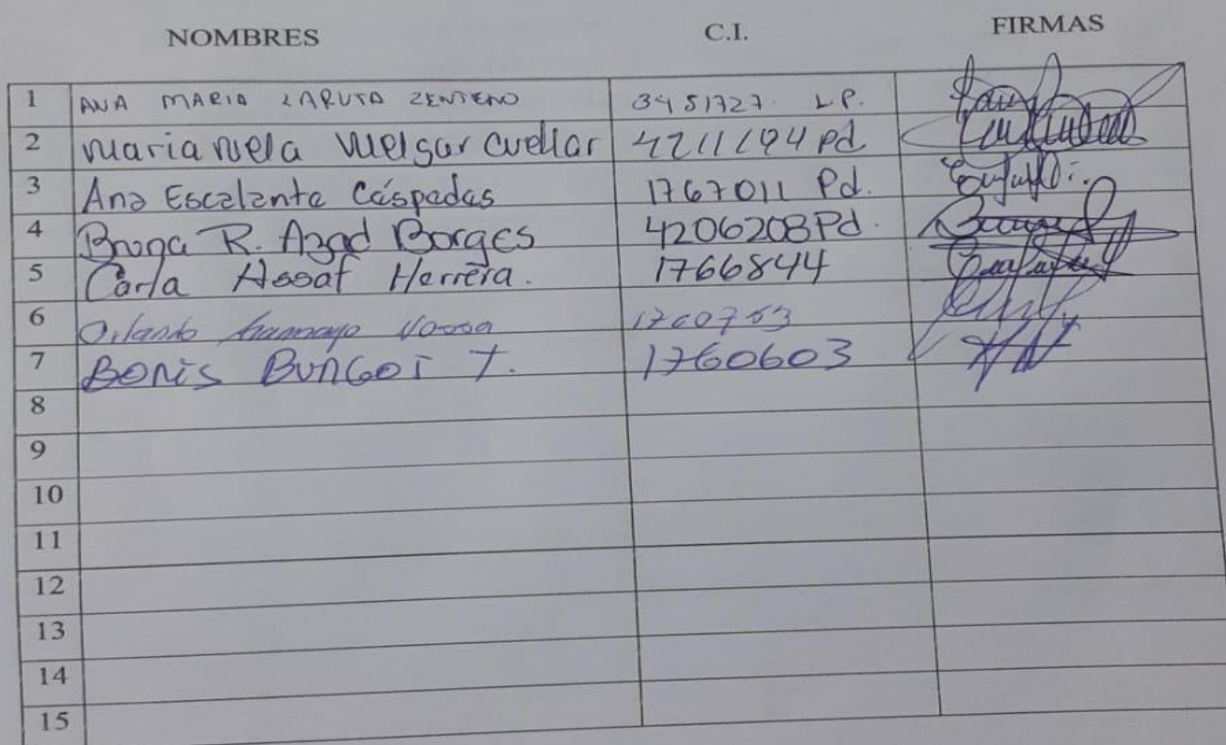 NOMBRES C.I. FIRMAS
1 ANA MARIA LARUTA ZENTENO 3451727 L.P.
2 Maria nela Melgar Cuellar 4211194 Pd
3 Ana Escalante Céspedes 1767011 Pd.
4 Bruna R. Azad Borges 4206208 Pd.
5 Carla Assaf Herrera. 1766844
6 Orlando 1760753
7 BORIS BUNGOI T. 1760603
8
9
10
11
12
13
14
15